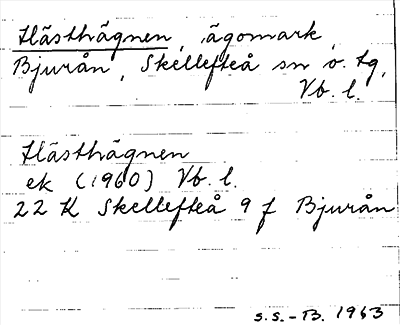 Hästhägnen, ägomark,
Bjurån, Skellefteå sn o. tg,
Vb. l.
Hästhägnen
ek (1960) Vb. l.
22 K Skellefteå 9 f Bjurån
S.S.-B. 1963